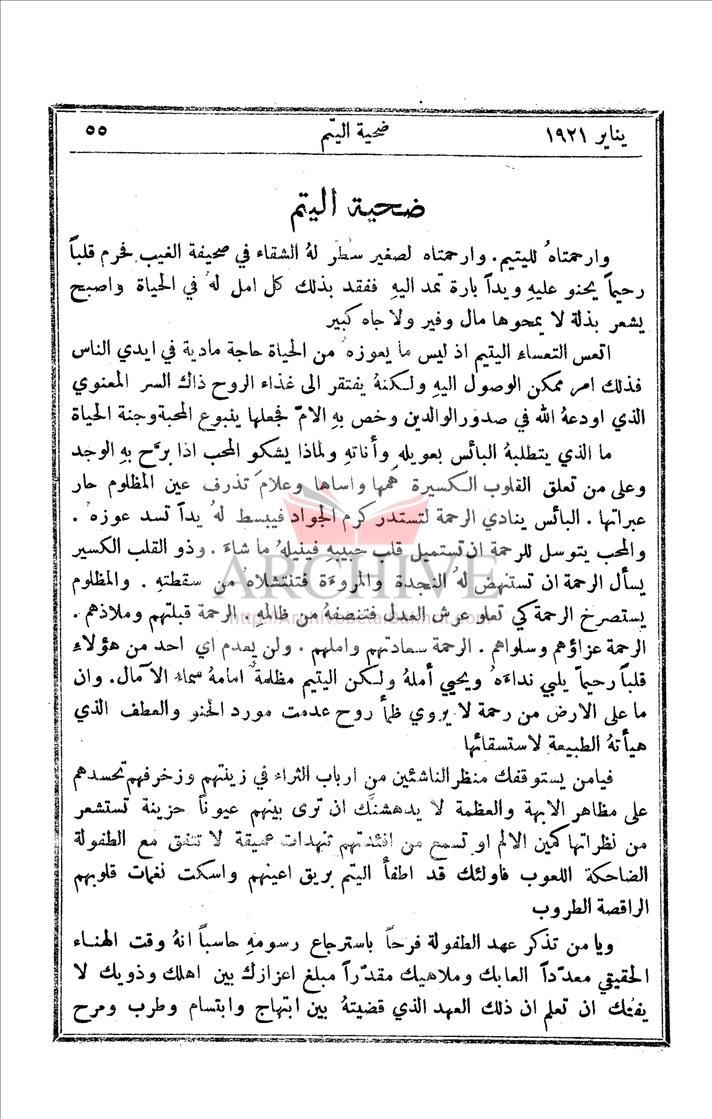 يناير ١٩٢١ ضحية اليتم ٥٥
ضحية اليتم
وارحمتاهُ لليتيم. وارحمتاه لصغير سطّر لهُ الشقاء في صحيفة الغيب فحرم قلباً
رحيماً يحنو عليهِ ويداً بارة تمد اليهِ ففقد بذلك كل امل لهُ في الحياة واصبح
يشعر بذلة لا يمحوها مال وفير ولا جاه كبير
اتعس التعساء اليتيم اذ ليس ما يعوزهُ من الحياة حاجة مادية في ايدي الناس
فذلك امر ممكن الوصول اليهِ ولكنهُ يفتقر الى غذاء الروح ذاك السر المعنوي
الذي اودعهُ الله في صدور الوالدين وخص بهِ الامّ فجعلها ينبوع المحبة وجنة الحياة
ما الذي يتطلبهُ البائس بعويلهِ وأناتهِ ولماذا يشكو المحب اذا برَّح بهِ الوجد
وعلى من تعلق القلوب الكسيرة همها واساها وعلامَ تذرف عين المظلوم حار
عبراتها. البائس ينادي الرحمة لتستدر كرم الجواد فيبسط لهُ يداً تسد عوزهُ.
والمحب يتوسل للرحمة ان تستميل قلب حبيبهِ فينيلهُ ما شاءَ. وذو القلب الكسير
يسأل الرحمة ان تستنهض لهُ النجدة والمروءة فتنتشلاهُ من سقطتهِ. والمظلوم
يستصرخ الرحمة كي تعلو عرش العدل فتنصفهُ من ظالمهِ. الرحمة قبلتهم وملاذهم.
الرحمة عزاؤهم وسلواهم. الرحمة سعادتهم واملهم. ولن يعدم اي احد من هؤلاءِ
قلباً رحيماً يلبي نداءَهُ ويحيي أملهُ ولكن اليتيم مظلمةٌ امامهُ سماء الآمال. وان
ما على الارض من رحمة لا يروي ظمأ روح عدمت مورد الحنو والعطف الذي
هيأتهُ الطبيعة لاستسقائها
فيا من يستوقفك منظر الناشئين من ارباب الثراء في زينتهم وزخرفهم تحسدهم
على مظاهر الابهة والعظمة لا يدهشنّك ان ترى بينهم عيوناً حزينة تستشعر
من نظراتها كمين الالم او تسمع من افئدتهم تنهدات عميقة لا تتفق مع الطفولة
الضاحكة اللعوب فاولئك قد اطفأ اليتم بريق اعينهم واسكت نغمات قلوبهم
الراقصة الطروب
ويا من تذكر عهد الطفولة فرحاً باسترجاع رسومهِ حاسباً انهُ وقت الهناء
الحقيقي معدّداً العابك وملاهيك مقدّراً مبلغ اعزازك بين اهلك وذويك لا
يفتك ان تعلم ان ذلك العهد الذي قضيتهُ بين ابتهاج وابتسام وطرب ومرح
ARCHIVE